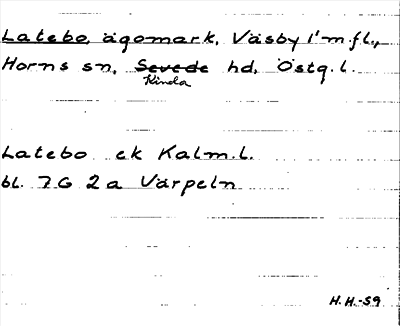 Latebo, ägomark, Väsby 1' m.fl.,
Horns sn, Sevede hd, Östg.l.
Kinda
Latebo ek Kalm.l.
bl. 7G 2a Värpeln
H.H.-59